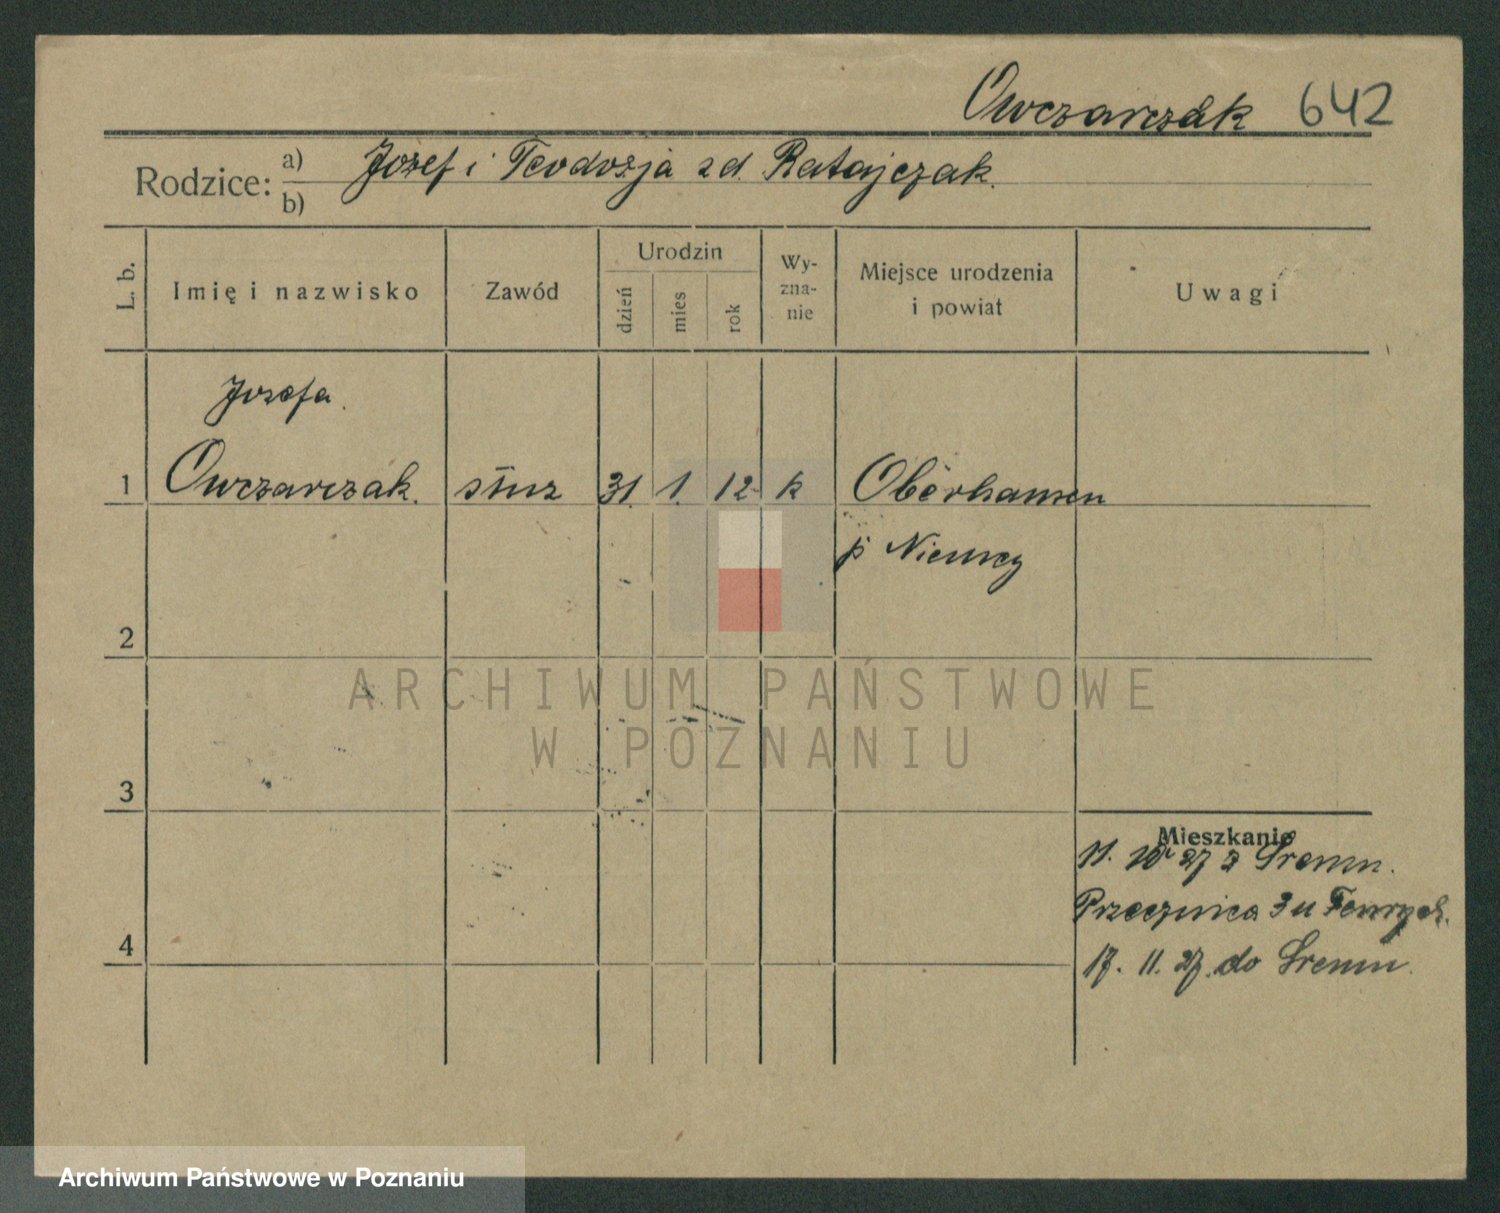 Owczarczak 642
Rodzice: a) Józef i Teodozja zd. Ratajczak.
b)
L. b.
Imię i nazwisko
Zawód
Urodzin
dzień
mies
rok
Wy-
zna-
nie
Miejsce urodzenia
i powiat
Uwagi
Józefa
1 Owczarczak. służ 31. 1. 12 k Oberhausen
p Niemcy
2
3
4
Mieszkanie
11. 10. 27 z Śremu.
Przecznica 3 u
17. 11. 27. do Śremu.
ARCHIWUM PAŃSTWOWE
W POZNANIU
Archiwum Państwowe w Poznaniu